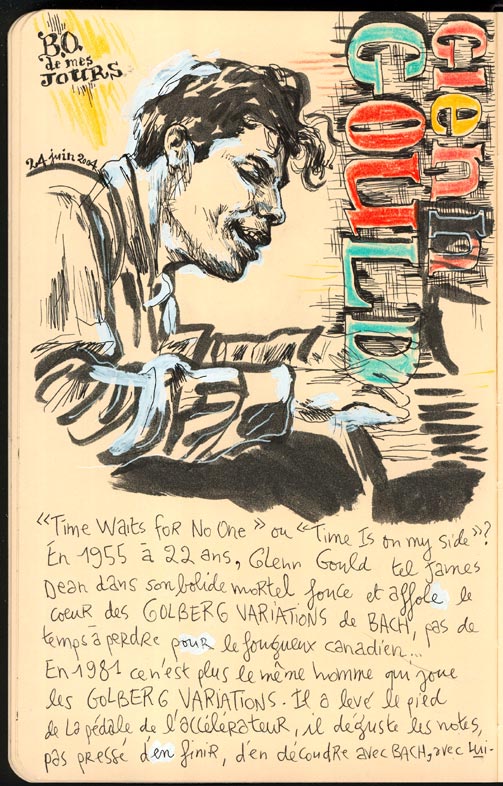 B.O.
de mes
JOURS
24 juin 2004
Glenn
GOULD
«Time Waits for No One» ou «Time Is on my side»?
En 1955 à 22 ans, Glenn Gould tel James
Dean dans son bolide mortel fonce et affole le
coeur des GOLBERG VARIATIONS de BACH, pas de
temps à perdre pour le fougueux canadien...
En 1981 ce n'est plus le même homme qui joue
les GOLBERG VARIATIONS. Il a levé le pied
de la pédale de l'accélérateur, il déguste les notes,
pas pressé d'en finir, d'en découdre avec BACH, avec lui-